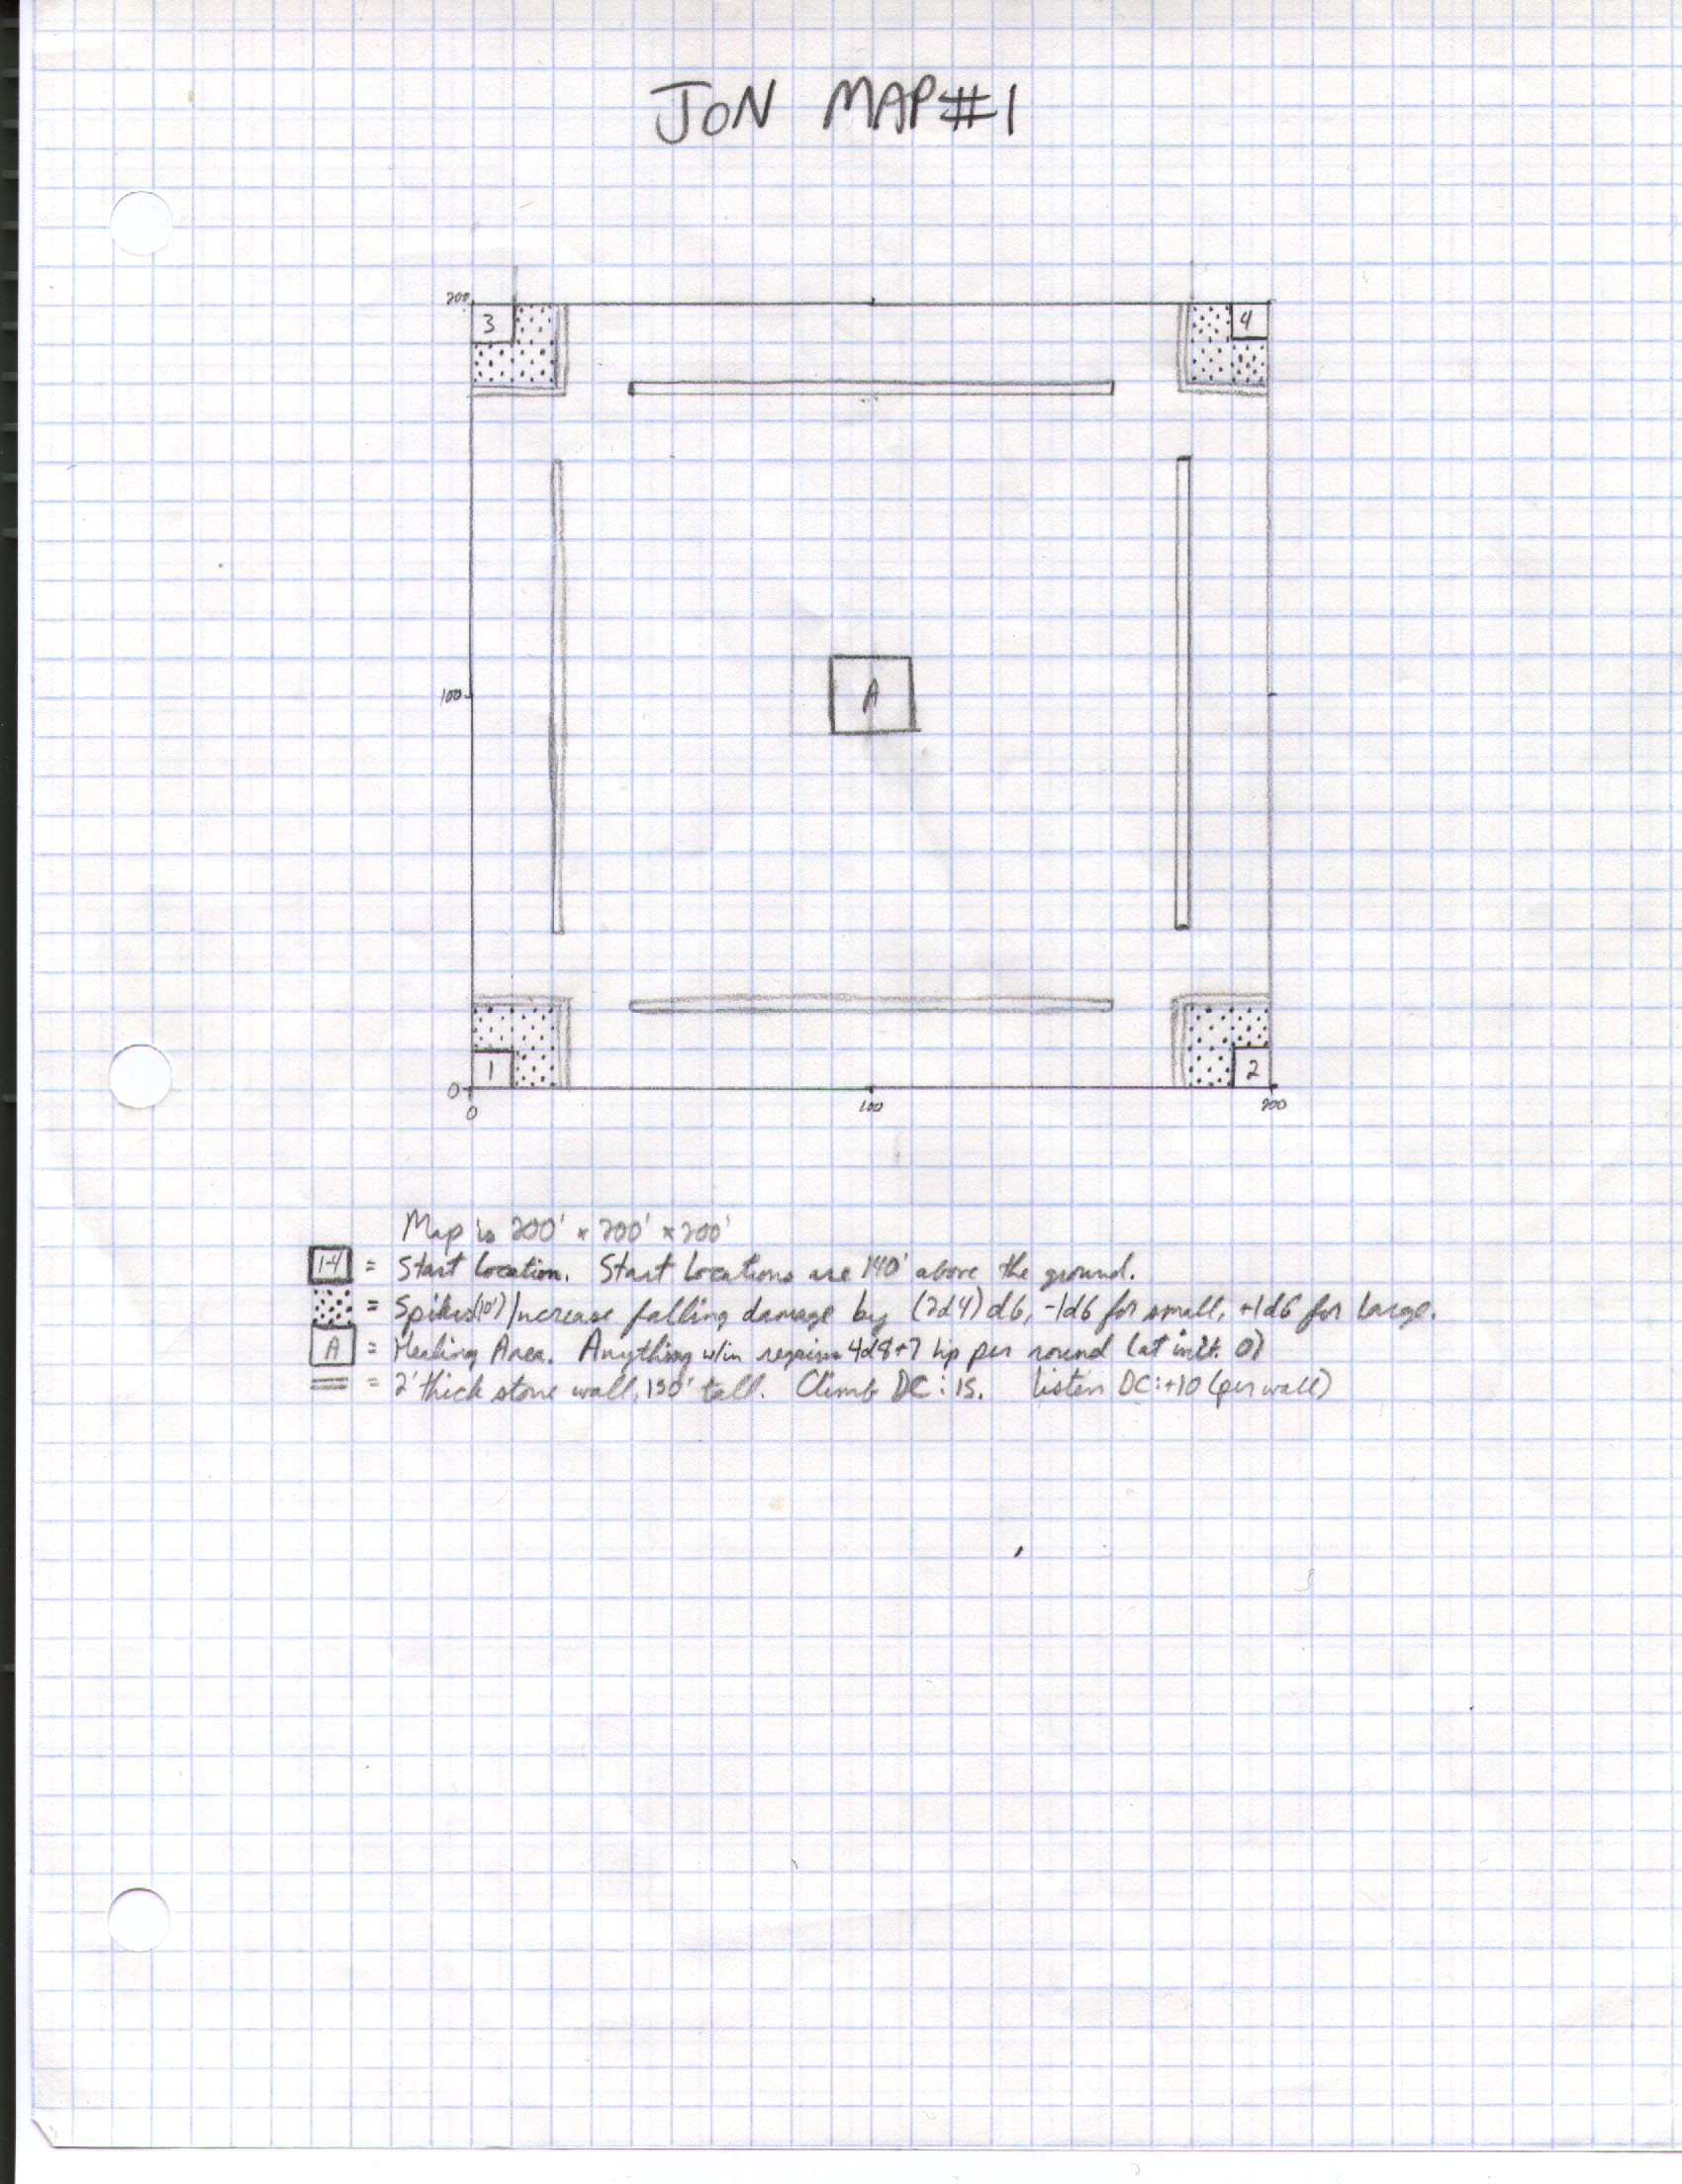 JON MAP#1
200
3
4
100
A
1
2
0
0
100
200
Map is 200' x 200' x 200'
1-4 = Start Location. Start Locations are 140' above the ground.
= Spikes(10') Increase falling damage by (2d4)d6, -1d6 for small, +1d6 for large.
A = Healing Area. Anything w/in regains 4d8+7 hp per round (at init. 0)
= 2' thick stone wall, 150' tall. Climb DC: 15. Listen DC:+10 (per wall)